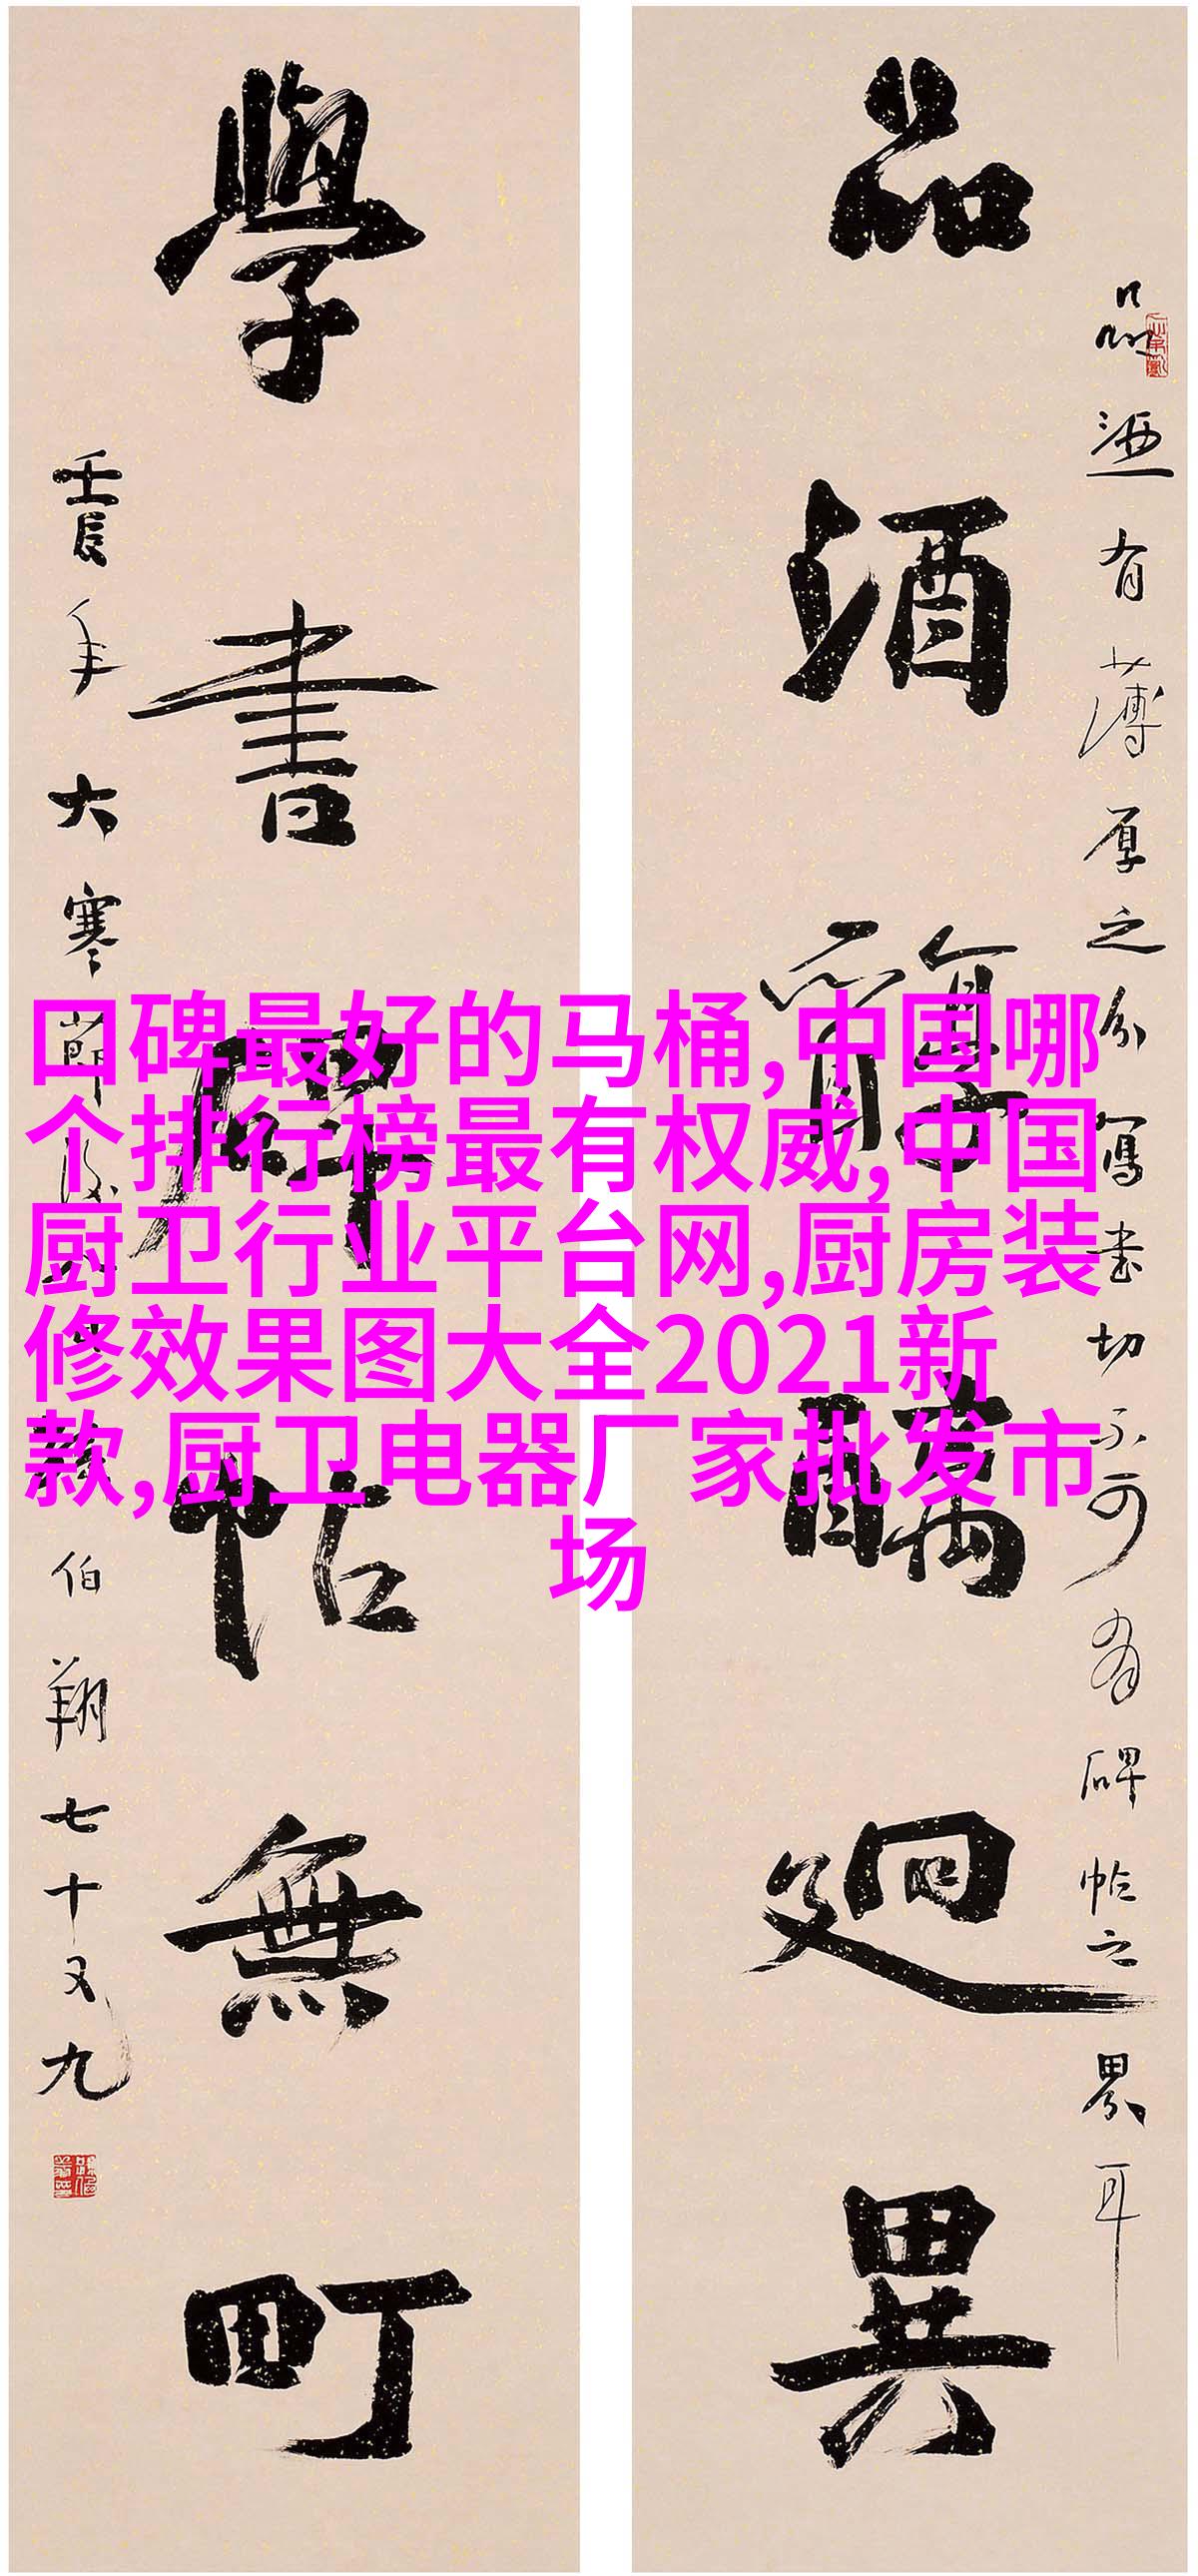 品酒醇醨迥異
品酒有薄厚之分寫書切不可有碑帖之界耳
學書碑帖無町
壬辰年大寒節後
伯翔七十又九
口碑最好的马桶,中国哪
个排行榜最有权威,中国
厨卫行业平台网,厨房装
修效果图大全2021新
款,厨卫电器厂家批发市
场